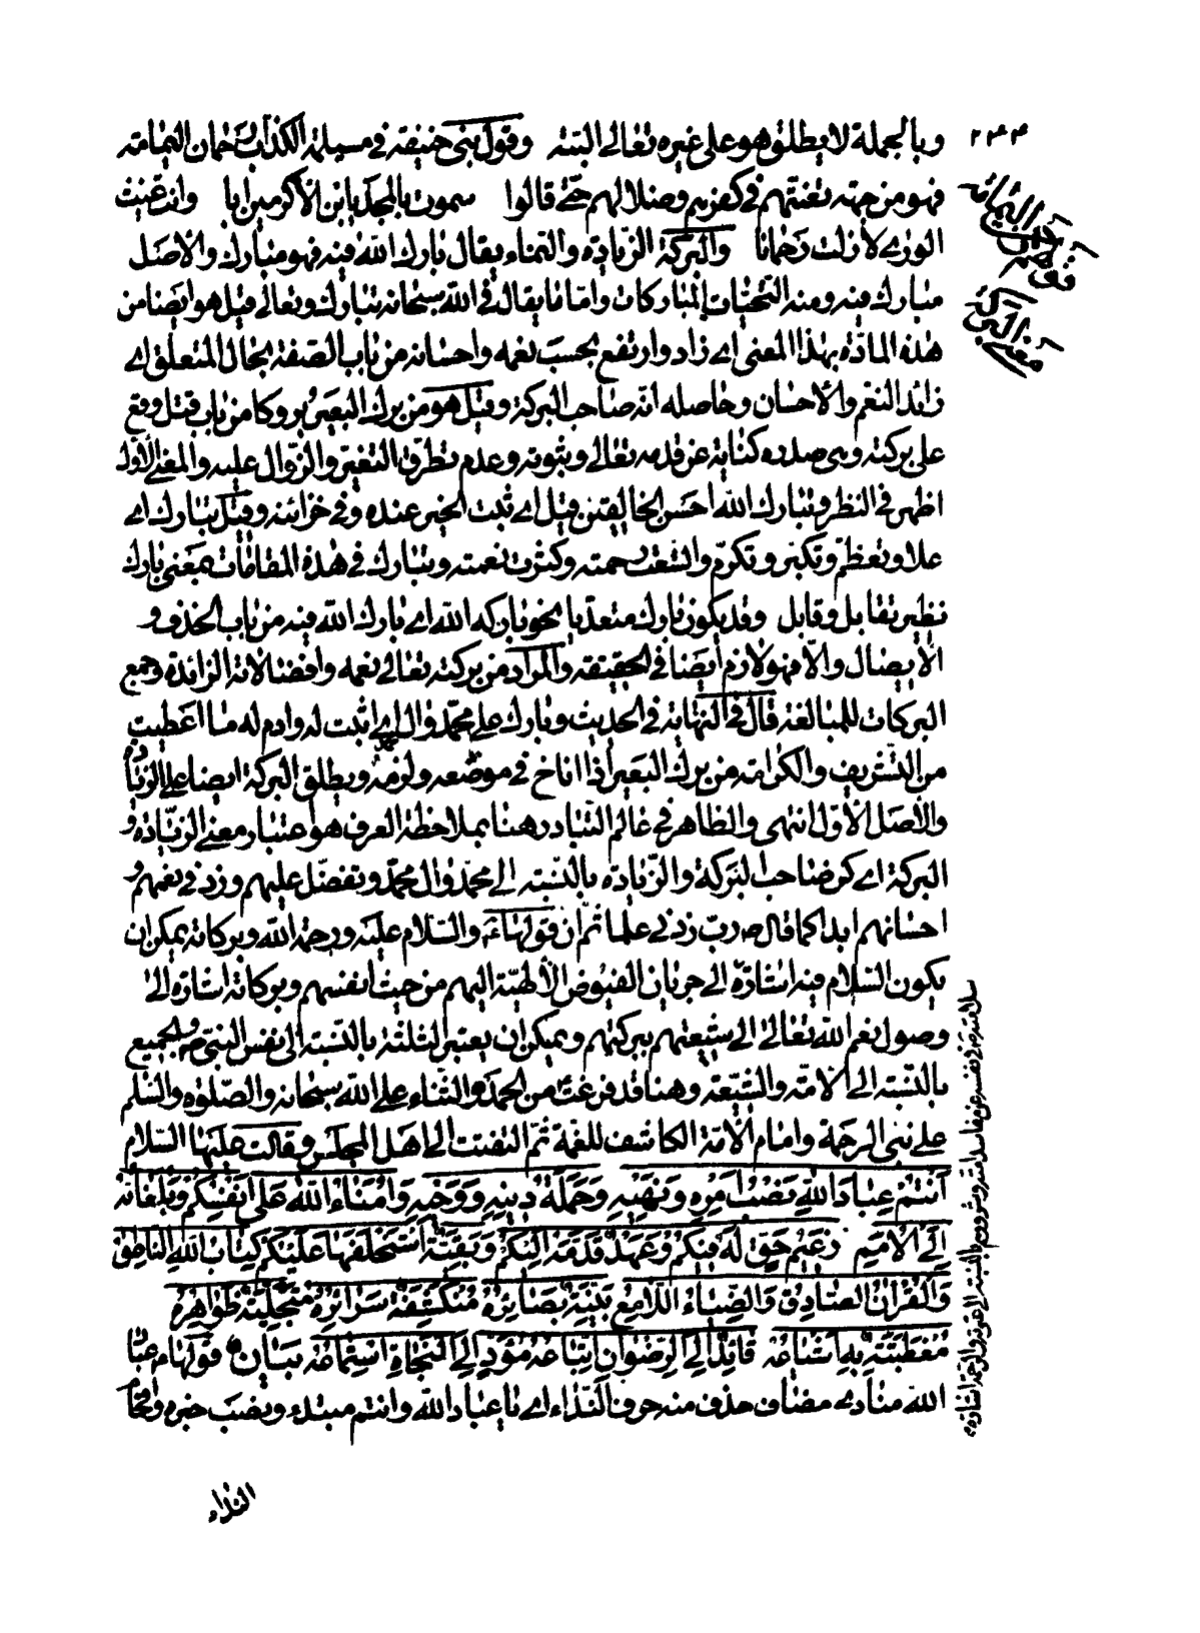 ٢٤٤
وبالجملة لا يطلق هو على غيره تعالى البتة وقول بنى حنيفة في مسيلمة الكذاب رحمان اليمامة
فهو من جهة تعنتهم في كفرهم وضلالهم حتى قالوا سموت بالمجد يا بن الأكرمين ابا وانت غيث
الورى لا زلت رحمانا والبركة الزيادة والنماء يقال بارك الله فيه فهو مبارك والاصل
مبارك فيه ومنه التحيات المباركات واما ما يقال في الله سبحانه تبارك وتعالى فقيل هو ايضا من
هذه المادة بهذا المعنى اى زاد وارتفع بحسب نعمه واحسانه من باب الصفة بحال المتعلق اى
زائد النعم والاحسان وحاصله انه صاحب البركة وقيل هو من برك البعير بروكا من باب قتل وقع
على بركته وهى صدره كناية عن قدمه تعالى وثبوته وعدم تطرق التغير والزوال عليه والمعنى الاول
اظهر في النظر وتبارك الله احسن الخالقين قيل اى ثبت الخير عنده وفى خزائنه وقيل تبارك اى
علا وتعظم وتكبر وتكرم واتسعت رحمته وكثرت نعمته وتبارك في هذه المقامات بمعنى بارك
نظير تقابل وقابل وقد يكون بارك متعديا نحو باركه الله اى بارك الله فيه من باب الحذف و
الايصال والا فهو لازم ايضا في الحقيقة والمراد من بركته تعالى نعمه وافضالاته الزائدة وجمع
البركات للمبالغة قال في النهاية في الحديث وبارك على محمد وآل محمد اى اثبت له وادم له ما اعطيت
من التشريف والكرامة من برك البعير اذا اناخ في موضعه ولزمه ويطلق البركة ايضا على الزيادة
والاصل الاول انتهى والظاهر في عالم التبادر هنا بملاحظة العرف هو اعتبار معنى الزيادة و
البركة اى كن صاحب البركة والزيادة بالنسبة الى محمد وآل محمد وتفضل عليهم وزد في نعمهم و
احسانهم ابدا كما قال رب زدنى علما ثم ان قولها والسلام عليه ورحمة الله وبركاته يمكن ان
يكون السلام فيه اشارة الى جريان الفيوض الالهية اليهم من حيث انفسهم وبركاته اشارة الى
وصول نعم الله تعالى الى شيعتهم ببركتهم ويمكن ان يعتبر الثلثة بالنسبة الى نفس النبى والجميع
بالنسبة الى الامة والشيعة وهنا قد فرغت من الحمد والثناء على الله سبحانه والصلوة والسلم
على نبى الرحمة وامام الأمة الكاشف للغمة ثم التفتت الى اهل المجلس وقالت عليها السلام
اَنْتُمْ عِبادَ اللهِ نُصْبُ اَمْرِهِ وَنَهْيِهِ وَحَمَلَةُ دينِهِ وَوَحْيِهِ وَاُمَناءُ اللهِ عَلى اَنْفُسِكُمْ وَبُلَغائُهُ
اِلَى الْاُمَمِ زَعيمُ حَقٍّ لَهُ فيكُمْ وَعَهْدٌ قَدَّمَهُ اِلَيْكُمْ وَبَقِيَّةٌ اسْتَخْلَفَها عَلَيْكُمْ كِتابُ اللهِ النّاطِقُ
وَالْقُرْانُ الصّادِقُ وَالضِّياءُ اللّامِعُ بَيِّنَةٌ بَصائِرُهُ مُنْكَشِفَةٌ سَرائِرُهُ مُتَجَلِّيَةٌ ظَواهِرُهُ
مُغْتَبِطَةٌ بِهِ اَشْياعُهُ قائِدٌ اِلَى الرِّضْوانِ اِتِّباعُهُ مُؤَدٍّ اِلَى النَّجاةِ اسْتِماعُهُ بيان قولها عباد
الله منادى مضاف حذف منه حرف النداء اى يا عباد الله وانتم مبتدء ونصب خبره وانما
النداء
معنى البركة